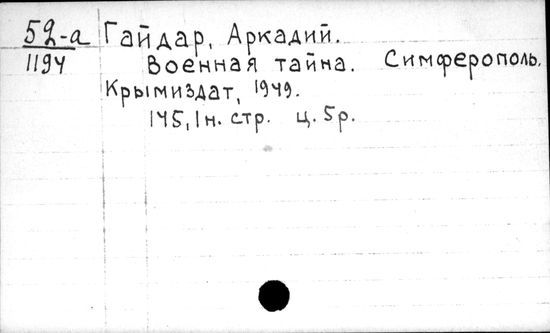 52-а Гайдар, Аркадий.
1194 Военная тайна. Симферополь.
Крымиздат, 1949.
145, 1н. стр. ц. 5р.